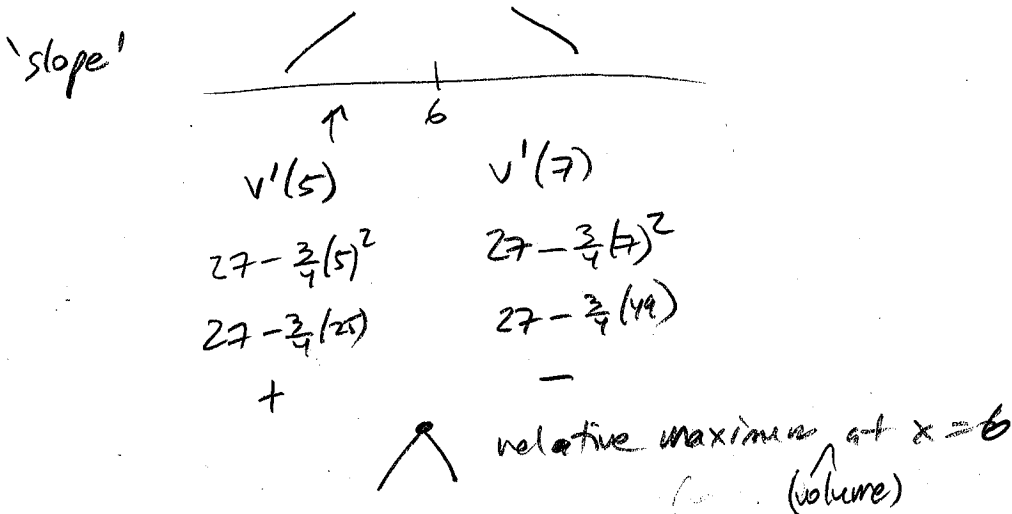 'slope'
6
v'(5) v'(7)
27 - 3/4(5)² 27 - 3/4(7)²
27 - 3/4(25) 27 - 3/4(49)
+ -
relative maximum at x = 6
(volume)